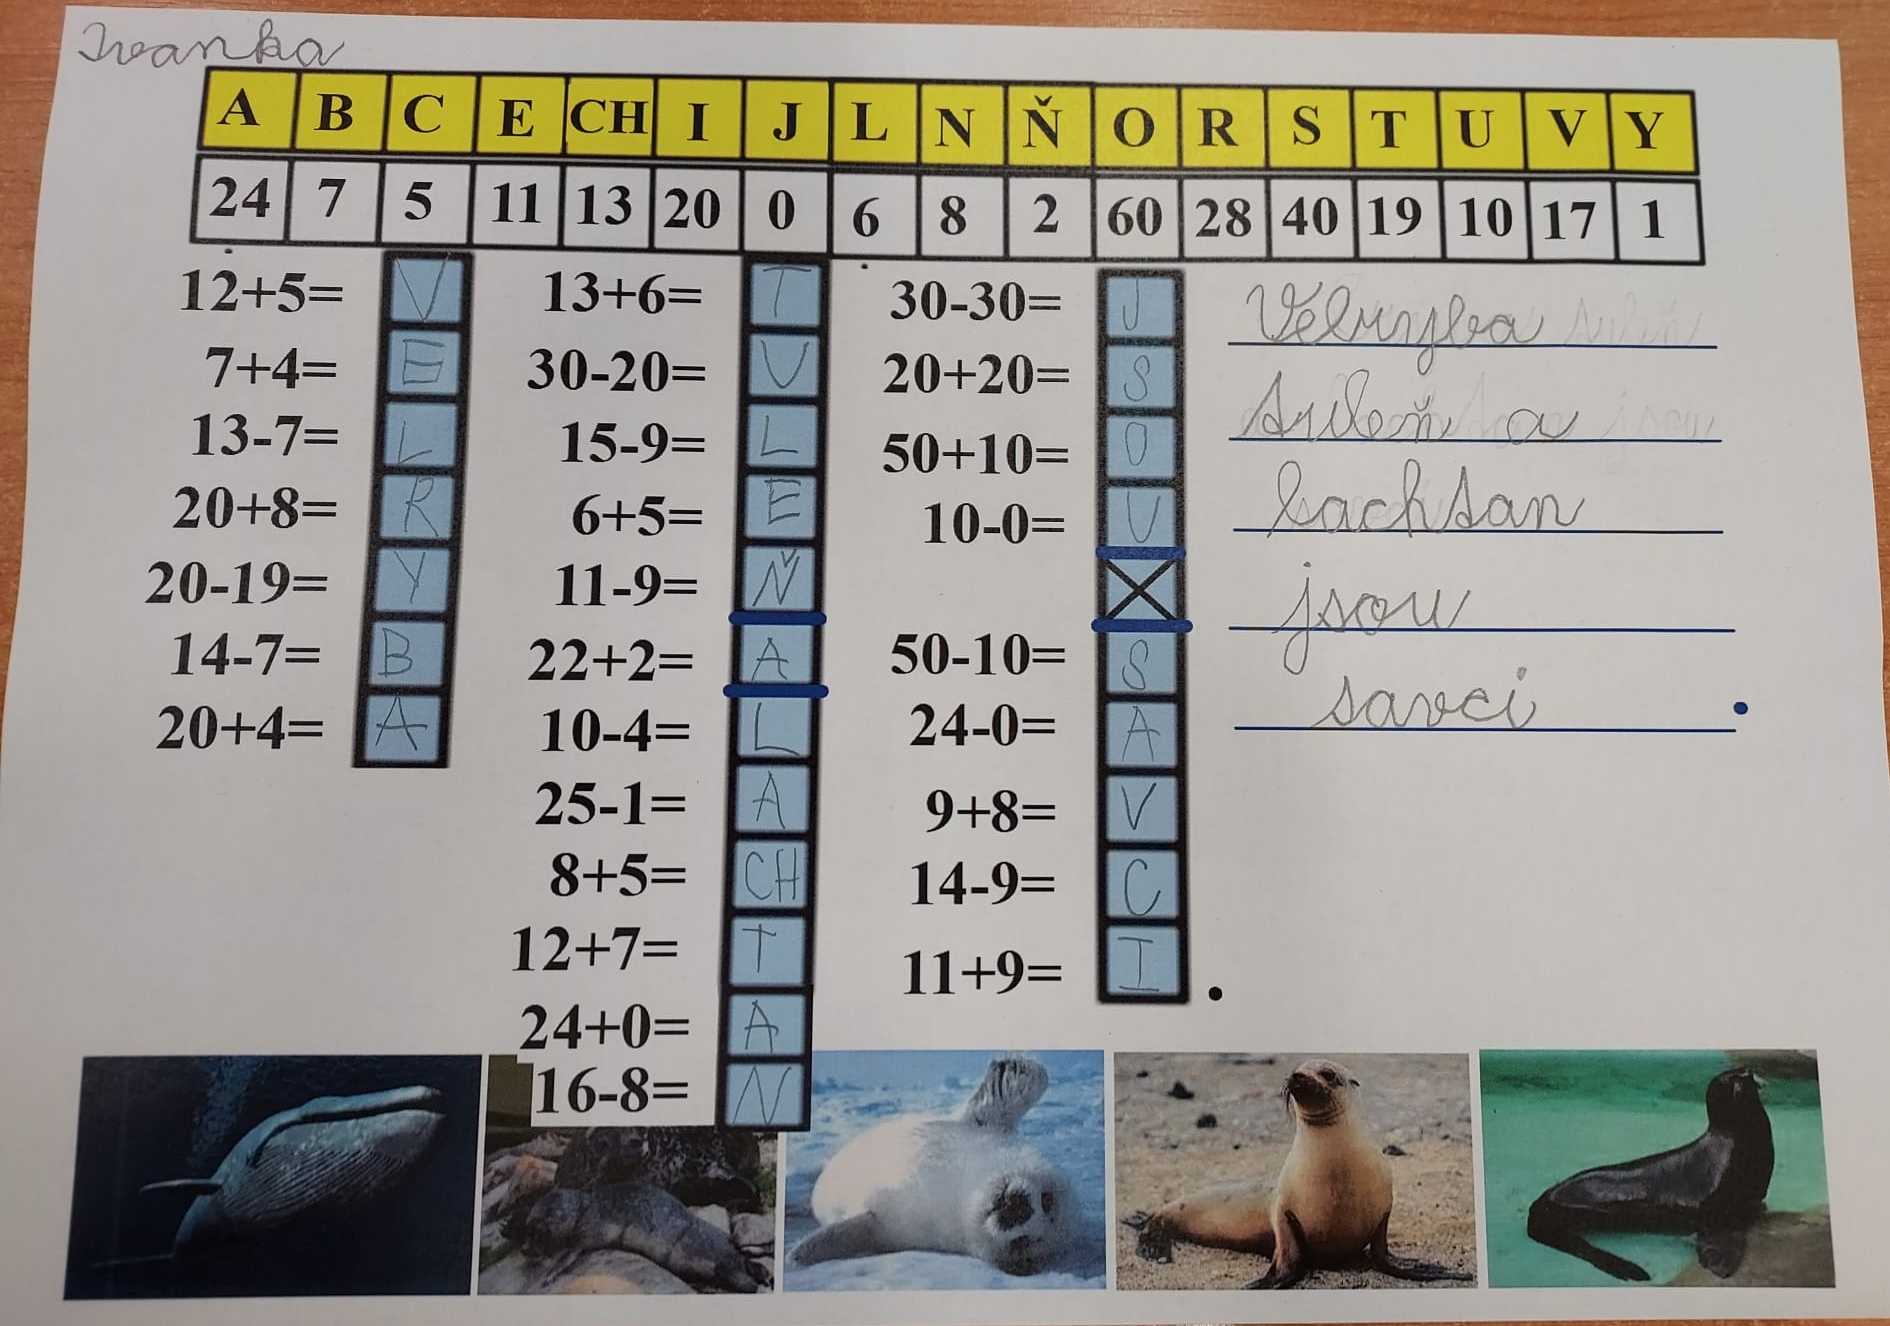 Ivanka
A B C E CH I J L N Ň O R S T U V Y
24 7 5 11 13 20 0 6 8 2 60 28 40 19 10 17 1
12+5= V
7+4= E
13-7= L
20+8= R
20-19= Y
14-7= B
20+4= A
13+6= T
30-20= U
15-9= L
6+5= E
11-9= Ň
22+2= A
10-4= L
25-1= A
8+5= CH
12+7= T
24+0= A
16-8= N
30-30= J
20+20= S
50+10= O
10-0= U
50-10= S
24-0= A
9+8= V
14-9= C
11+9= I .
Velryba
tuleň a
lachtan
jsou
savci .